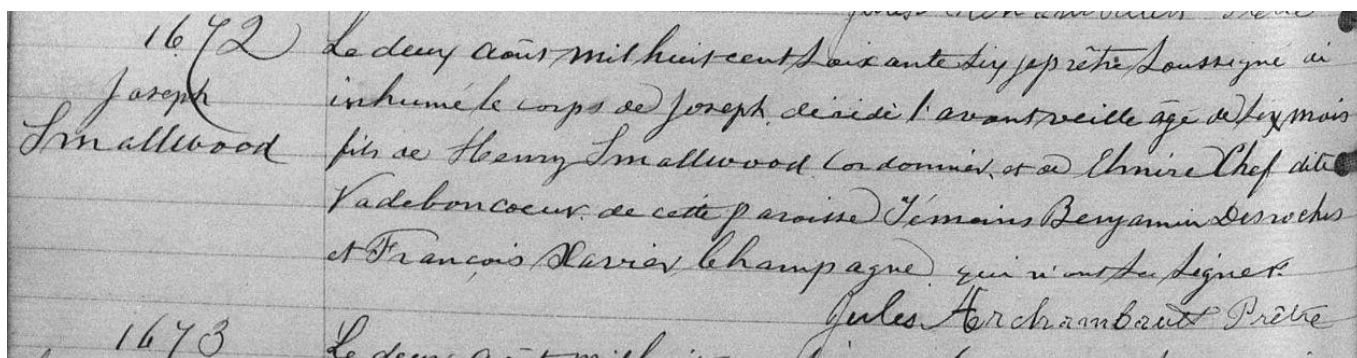 Jules Archambault Prêtre
1672
Joseph
Smallwood
Le deux août mil huit cent soixante six je prêtre soussigné ai
inhumé le corps de Joseph décédé l'avant veille âgé de six mois
fils de Henry Smallwood Cordonnier, et de Elmire Chef dite
Vadeboncoeur de cette paroisse Témoins Benjamin Desroches
et François Xavier Champagne qui n'ont su signer.
Jules Archambault Prêtre
1673
Le deux août mil huit